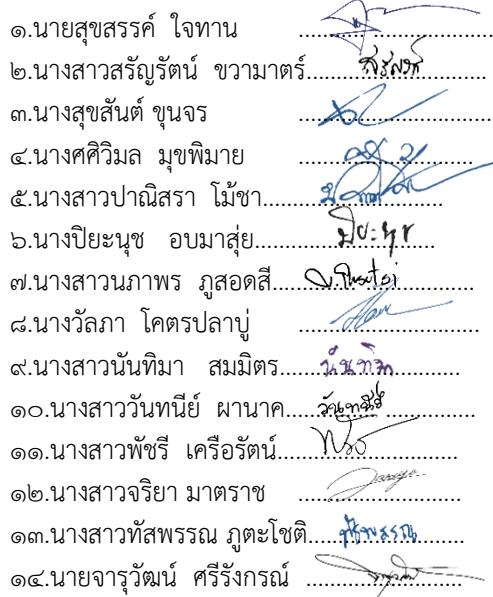 ๑.นายสุขสรรค์  ใจทาน ............................
๒.นางสาวสรัญรัตน์  ขวามาตร์..........................
๓.นางสุขสันต์ ขุนจร ............................
๔.นางศศิวิมล  มุขพิมาย ..........................
๕.นางสาวปาณิสรา  โม้ชา..........................
๖.นางปิยะนุช   อบมาสุ่ย.......................... ปิยะนุช
๗.นางสาวนภาพร  ภูสอดสี.............................
๘.นางวัลภา  โคตรปลาบู่ ..........................
๙.นางสาวนันทิมา   สมมิตร.......................... นันทิมา
๑๐.นางสาววันทนีย์  ผานาค.......................... วันทนีย์
๑๑.นางสาวพัชรี  เครือรัตน์..........................
๑๒.นางสาวจริยา มาตราช ........................
๑๓.นางสาวทัสพรรณ ภูตะโชติ...................... ทัสพรรณ
๑๔.นายจารุวัฒน์  ศรีรังกรณ์ .......................